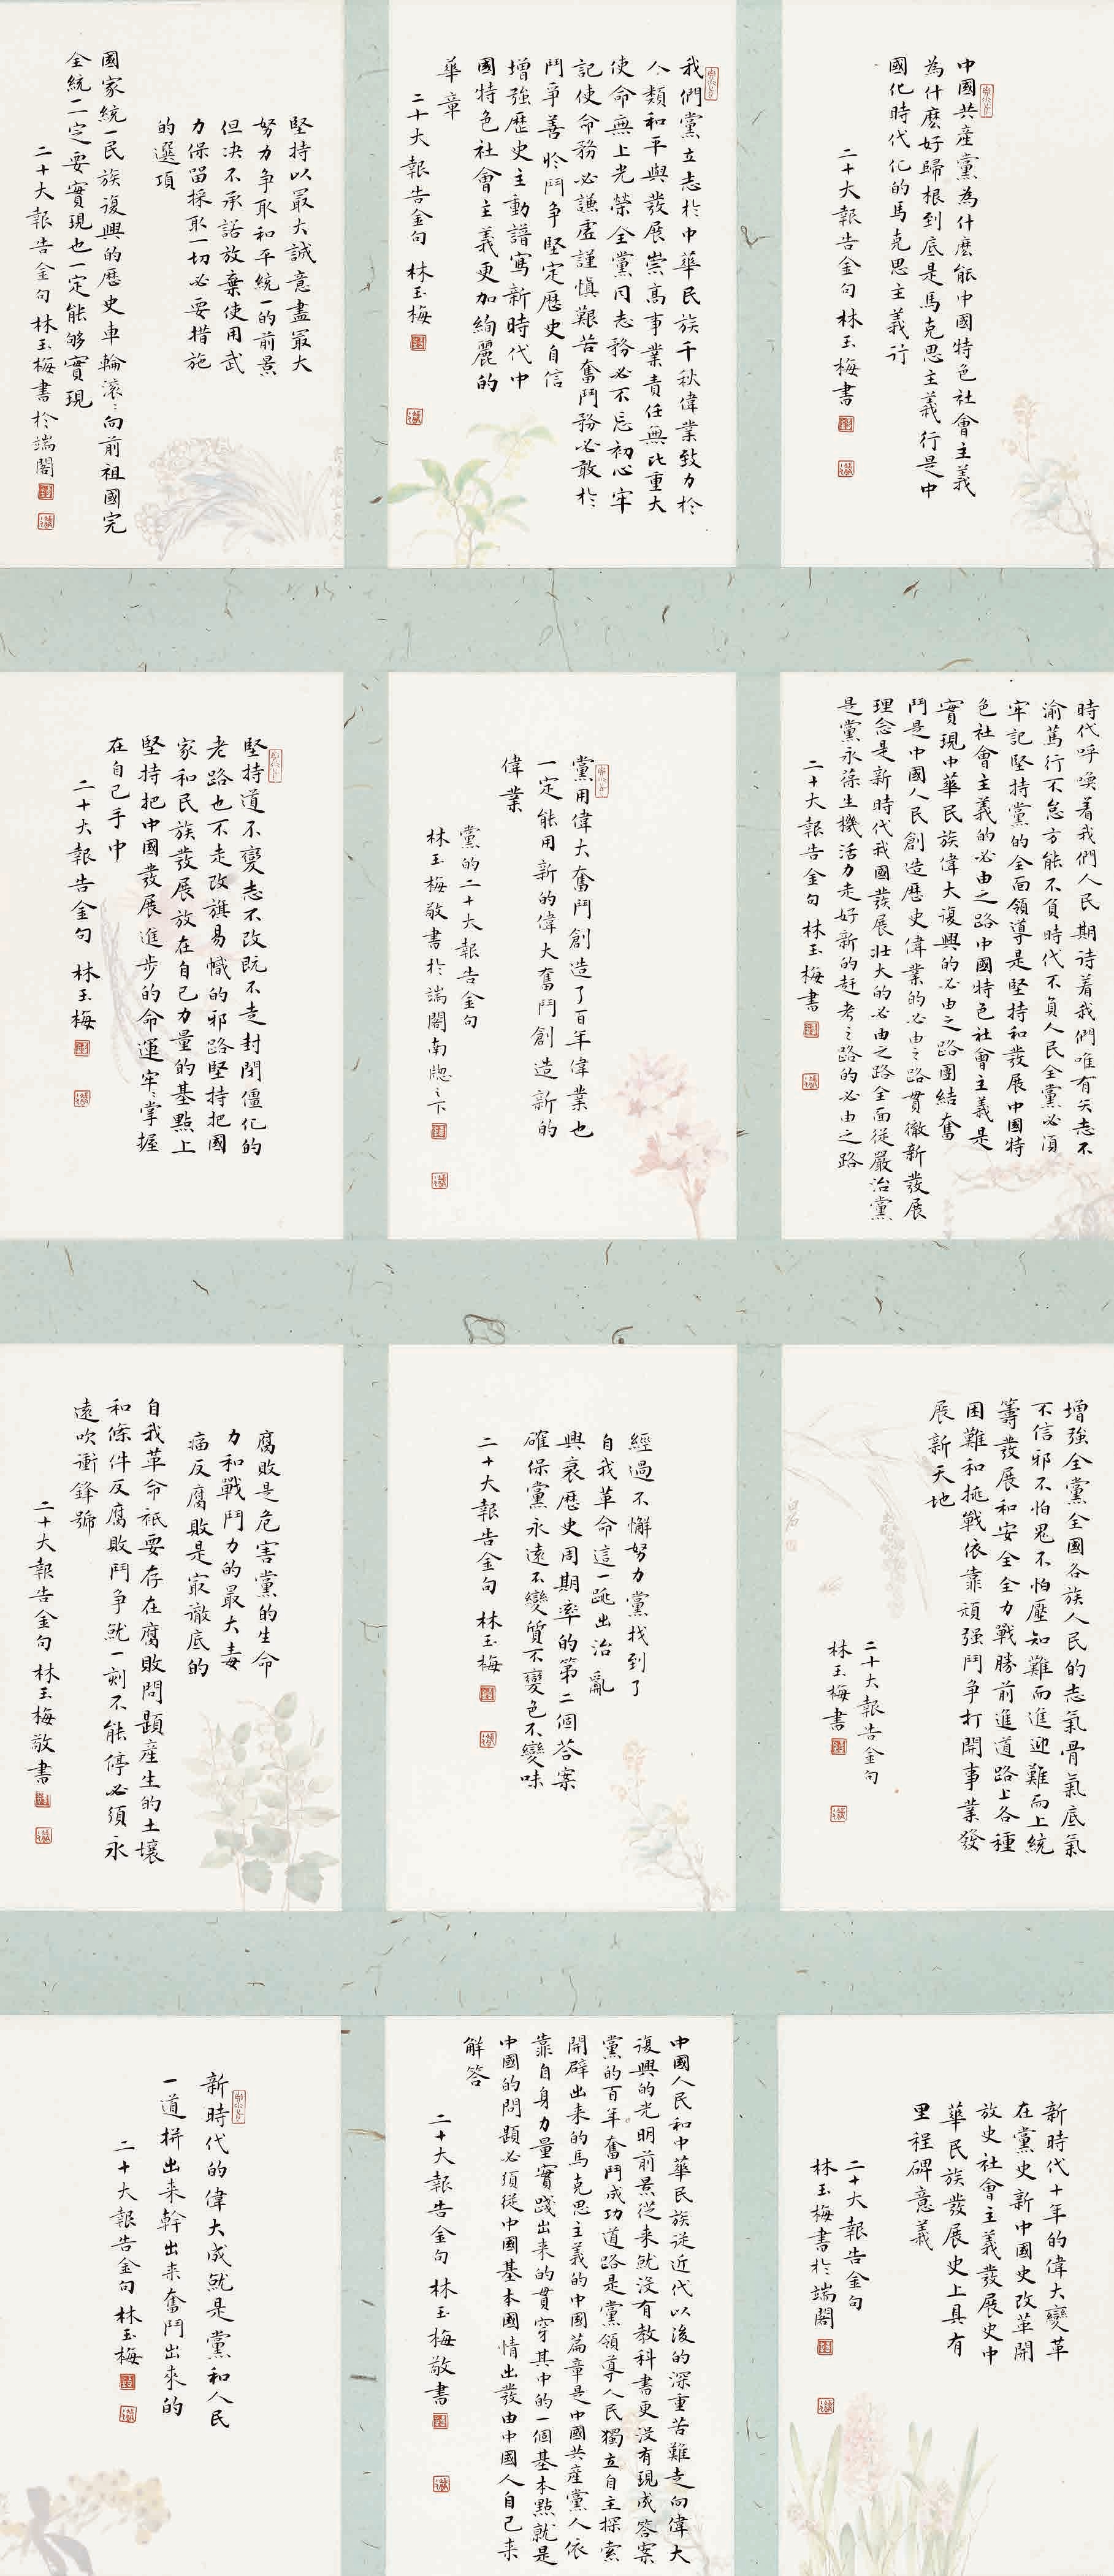 中國共產黨為什麼能中國特色社會主義
為什麼好歸根到底是馬克思主義行是中
國化時代化的馬克思主義行
二十大報告金句 林玉梅書
我們黨立志於中華民族千秋偉業致力於
人類和平與發展崇高事業責任無比重大
使命無上光榮全黨同志務必不忘初心牢
記使命務必謙虛謹慎艱苦奮鬥務必敢於
鬥爭善於鬥爭堅定歷史自信
增強歷史主動譜寫新時代中
國特色社會主義更加絢麗的
華章
二十大報告金句 林玉梅
堅持以最大誠意盡最大
努力爭取和平統一的前景
但決不承諾放棄使用武
力保留採取一切必要措施
的選項
國家統一民族復興的歷史車輪滾〻向前祖國完
全統一定要實現也一定能夠實現
二十大報告金句 林玉梅書於端閣
時代呼喚着我們人民期待着我們唯有矢志不
渝篤行不怠方能不負時代不負人民全黨必須
牢記堅持黨的全面領導是堅持和發展中國特
色社會主義的必由之路中國特色社會主義是
實現中華民族偉大復興的必由之路團結奮
鬥是中國人民創造歷史偉業的必由之路貫徹新發展
理念是新時代我國發展壯大的必由之路全面從嚴治黨
是黨永葆生機活力走好新的趕考之路的必由之路
二十大報告金句 林玉梅書
黨用偉大奮鬥創造了百年偉業也
一定能用新的偉大奮鬥創造新的
偉業
黨的二十大報告金句
林玉梅敬書於端閣南牕之下
堅持道不變志不改既不走封閉僵化的
老路也不走改旗易幟的邪路堅持把國
家和民族發展放在自己力量的基點上
堅持把中國發展進步的命運牢〻掌握
在自己手中
二十大報告金句 林玉梅
增強全黨全國各族人民的志氣骨氣底氣
不信邪不怕鬼不怕壓知難而進迎難而上統
籌發展和安全全力戰勝前進道路上各種
困難和挑戰依靠頑强鬥爭打開事業發
展新天地
二十大報告金句
林玉梅書
經過不懈努力黨找到了
自我革命這一跳出治亂
興衰歷史周期率的第二個答案
確保黨永遠不變質不變色不變味
二十大報告金句 林玉梅
腐敗是危害黨的生命
力和戰鬥力的最大毒
瘤反腐敗是最徹底的
自我革命祇要存在腐敗問題產生的土壤
和條件反腐敗鬥爭就一刻不能停必須永
遠吹衝鋒號
二十大報告金句 林玉梅敬書
新時代十年的偉大變革
在黨史新中國史改革開
放史社會主義發展史中
華民族發展史上具有
里程碑意義
二十大報告金句
林玉梅書於端閣
中國人民和中華民族從近代以後的深重苦難走向偉大
復興的光明前景從来就沒有教科書更沒有現成答案
黨的百年奮鬥成功道路是黨領導人民獨立自主探索
開辟出来的馬克思主義的中國篇章是中國共產黨人依
靠自身力量實踐出来的貫穿其中的一個基本點就是
中國的問題必須從中國基本國情出發由中國人自己来
解答
二十大報告金句 林玉梅敬書
新時代的偉大成就是黨和人民
一道拼出来幹出来奮鬥出來的
二十大報告金句 林玉梅